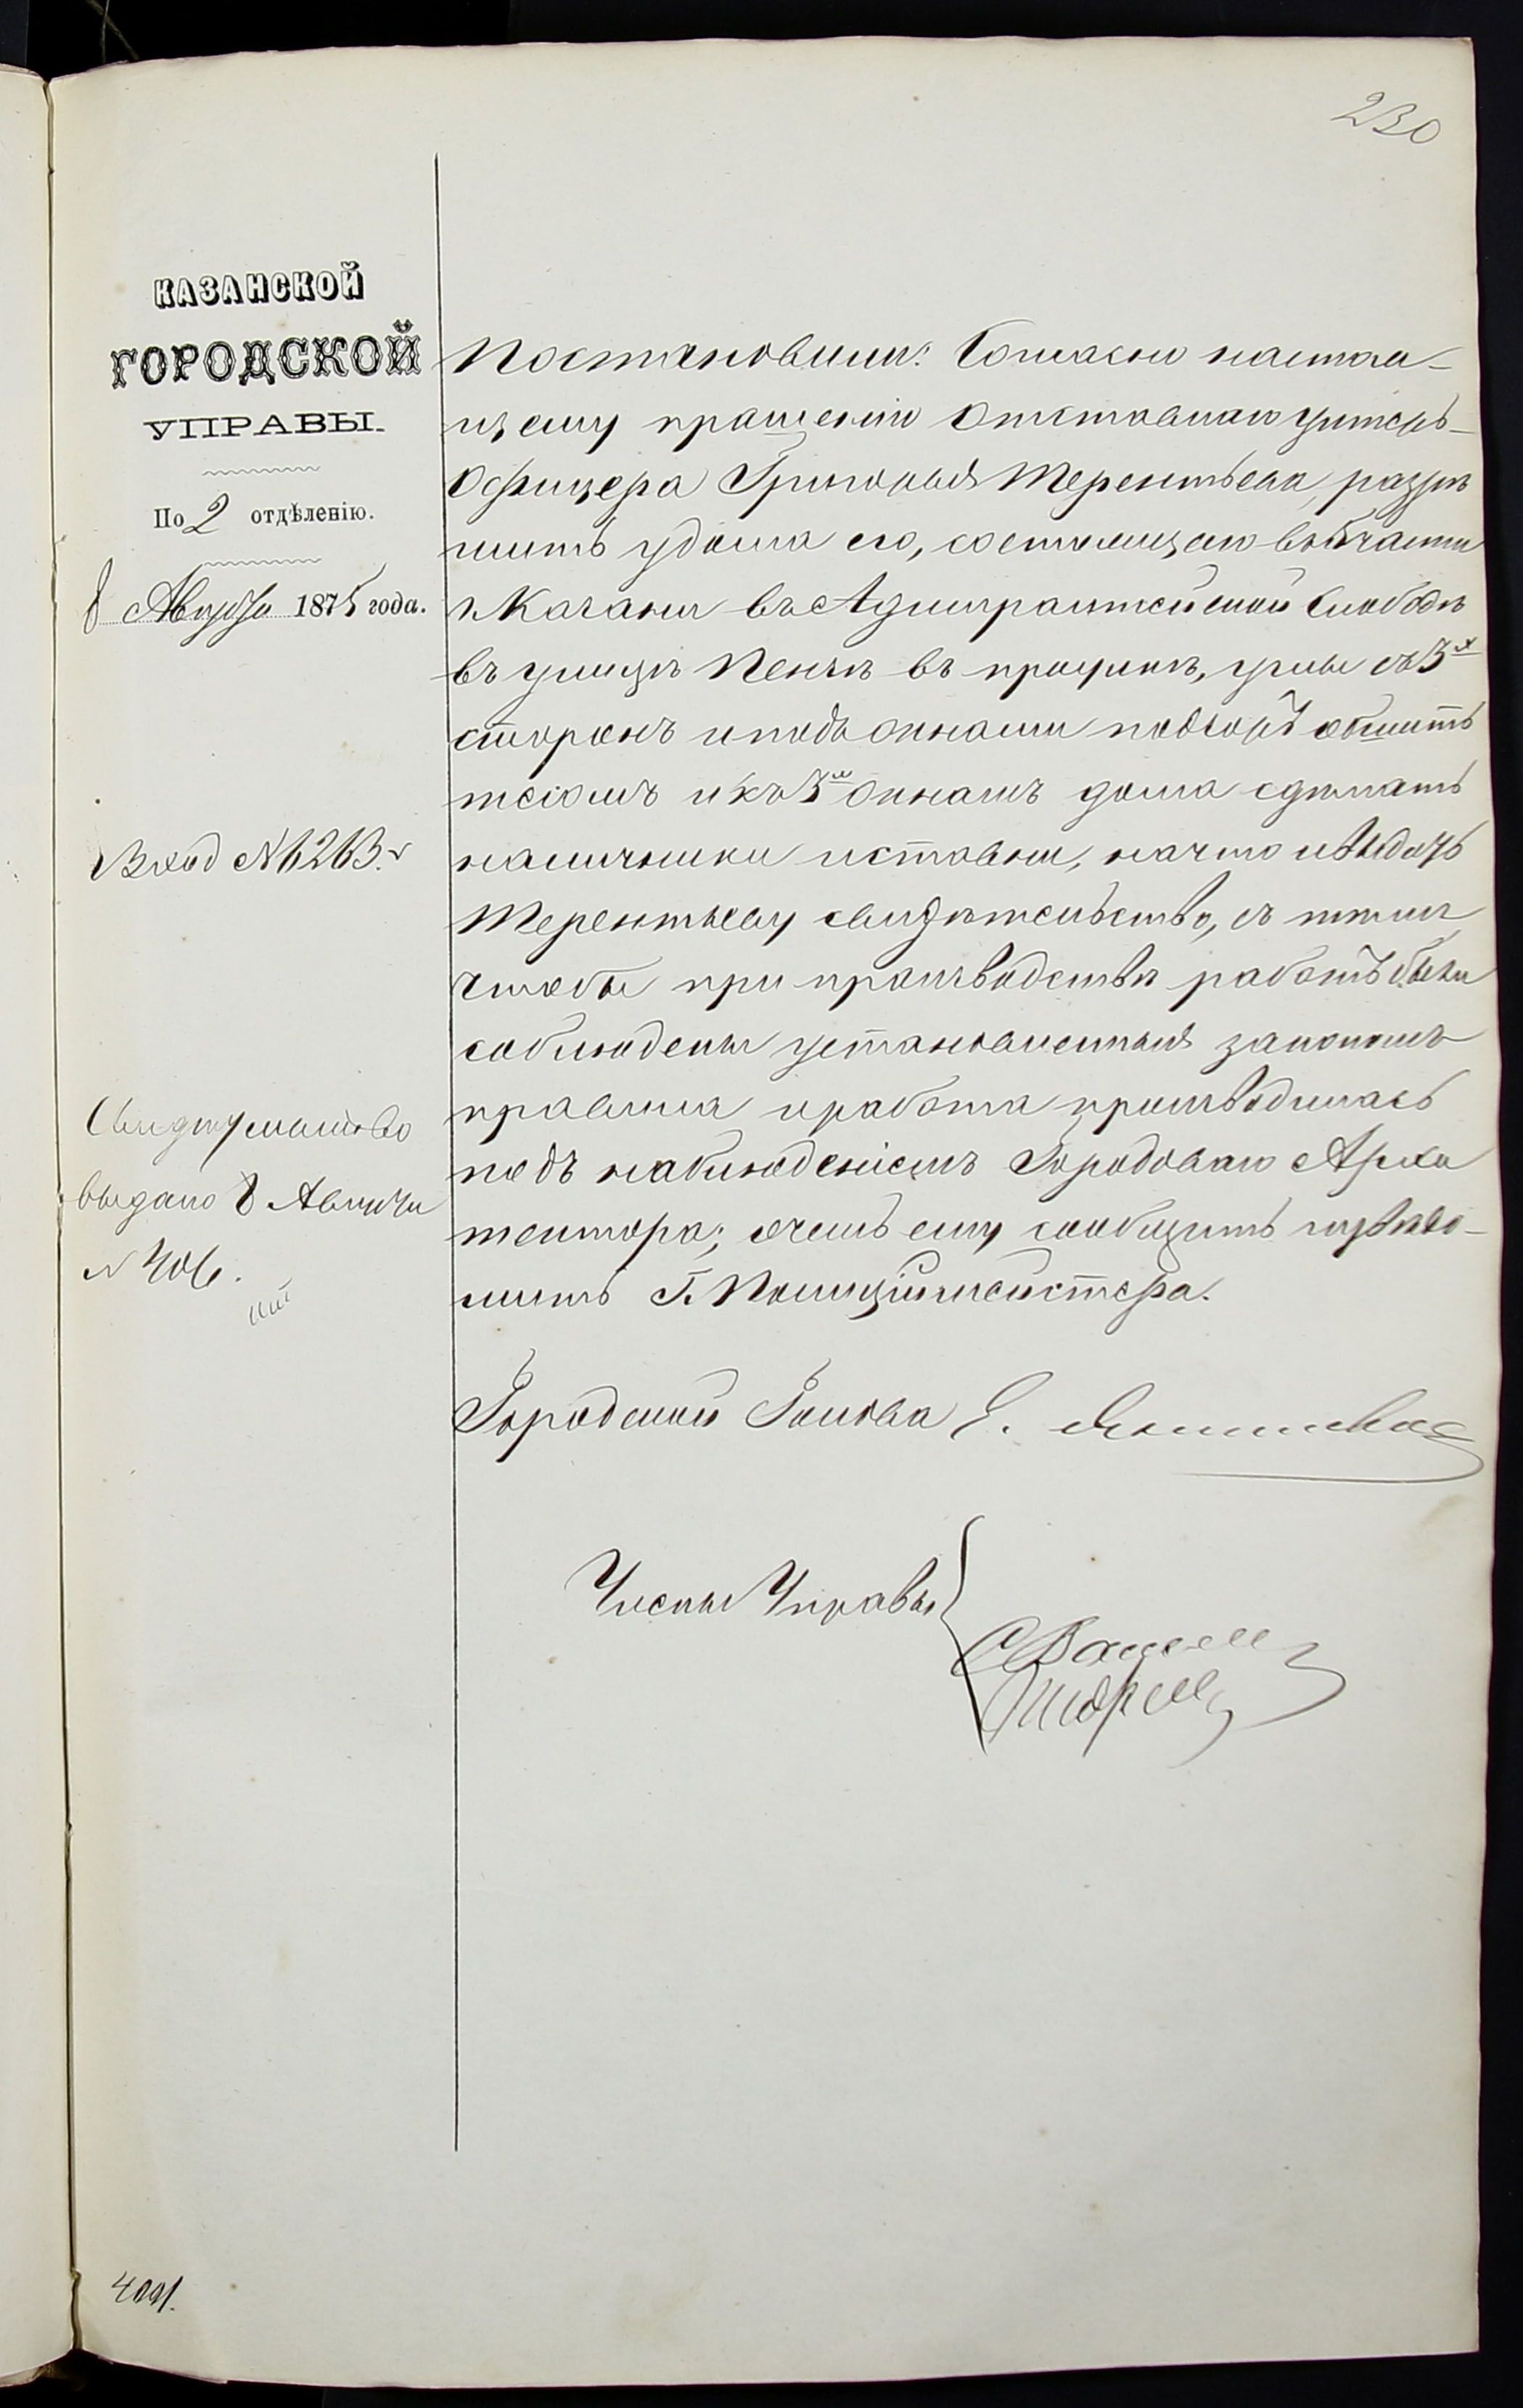 230
КАЗАНСКОЙ
ГОРОДСКОЙ
УПРАВЫ.
По 2 отдѣленію.
8 Августа 1875 года.
Вход № 6263.
Свидѣтельство
выдано 8 Августа
№ 406.
Постановили: Согласно настоя-
щему прошенію Отставнаго Унтеръ-
Офицера Григорья Терентьева, разрѣ
шить у дома его, состоящаго въ 6 части
г. Казани въ Адмиралтейской Слободѣ
въ улицѣ Пенкѣ въ проулокъ, углы съ 3х
сторонъ и подъ окнами подборъ обшить
тесомъ и къ 3м окнамъ дома сдѣлать
наличники и ставни, на что и выдать
Терентьеву свидѣтельство, съ тѣмъ
чтобы при производствѣ работъ были
соблюдены установленныя закономъ
правила и работа производилась
подъ наблюденіемъ Городоваго Архи
тектора; о чемъ ему сообщить и увѣдо-
мить Г. Полиціймейстера.
Городской Голова Е.
Члены Управы
4091.